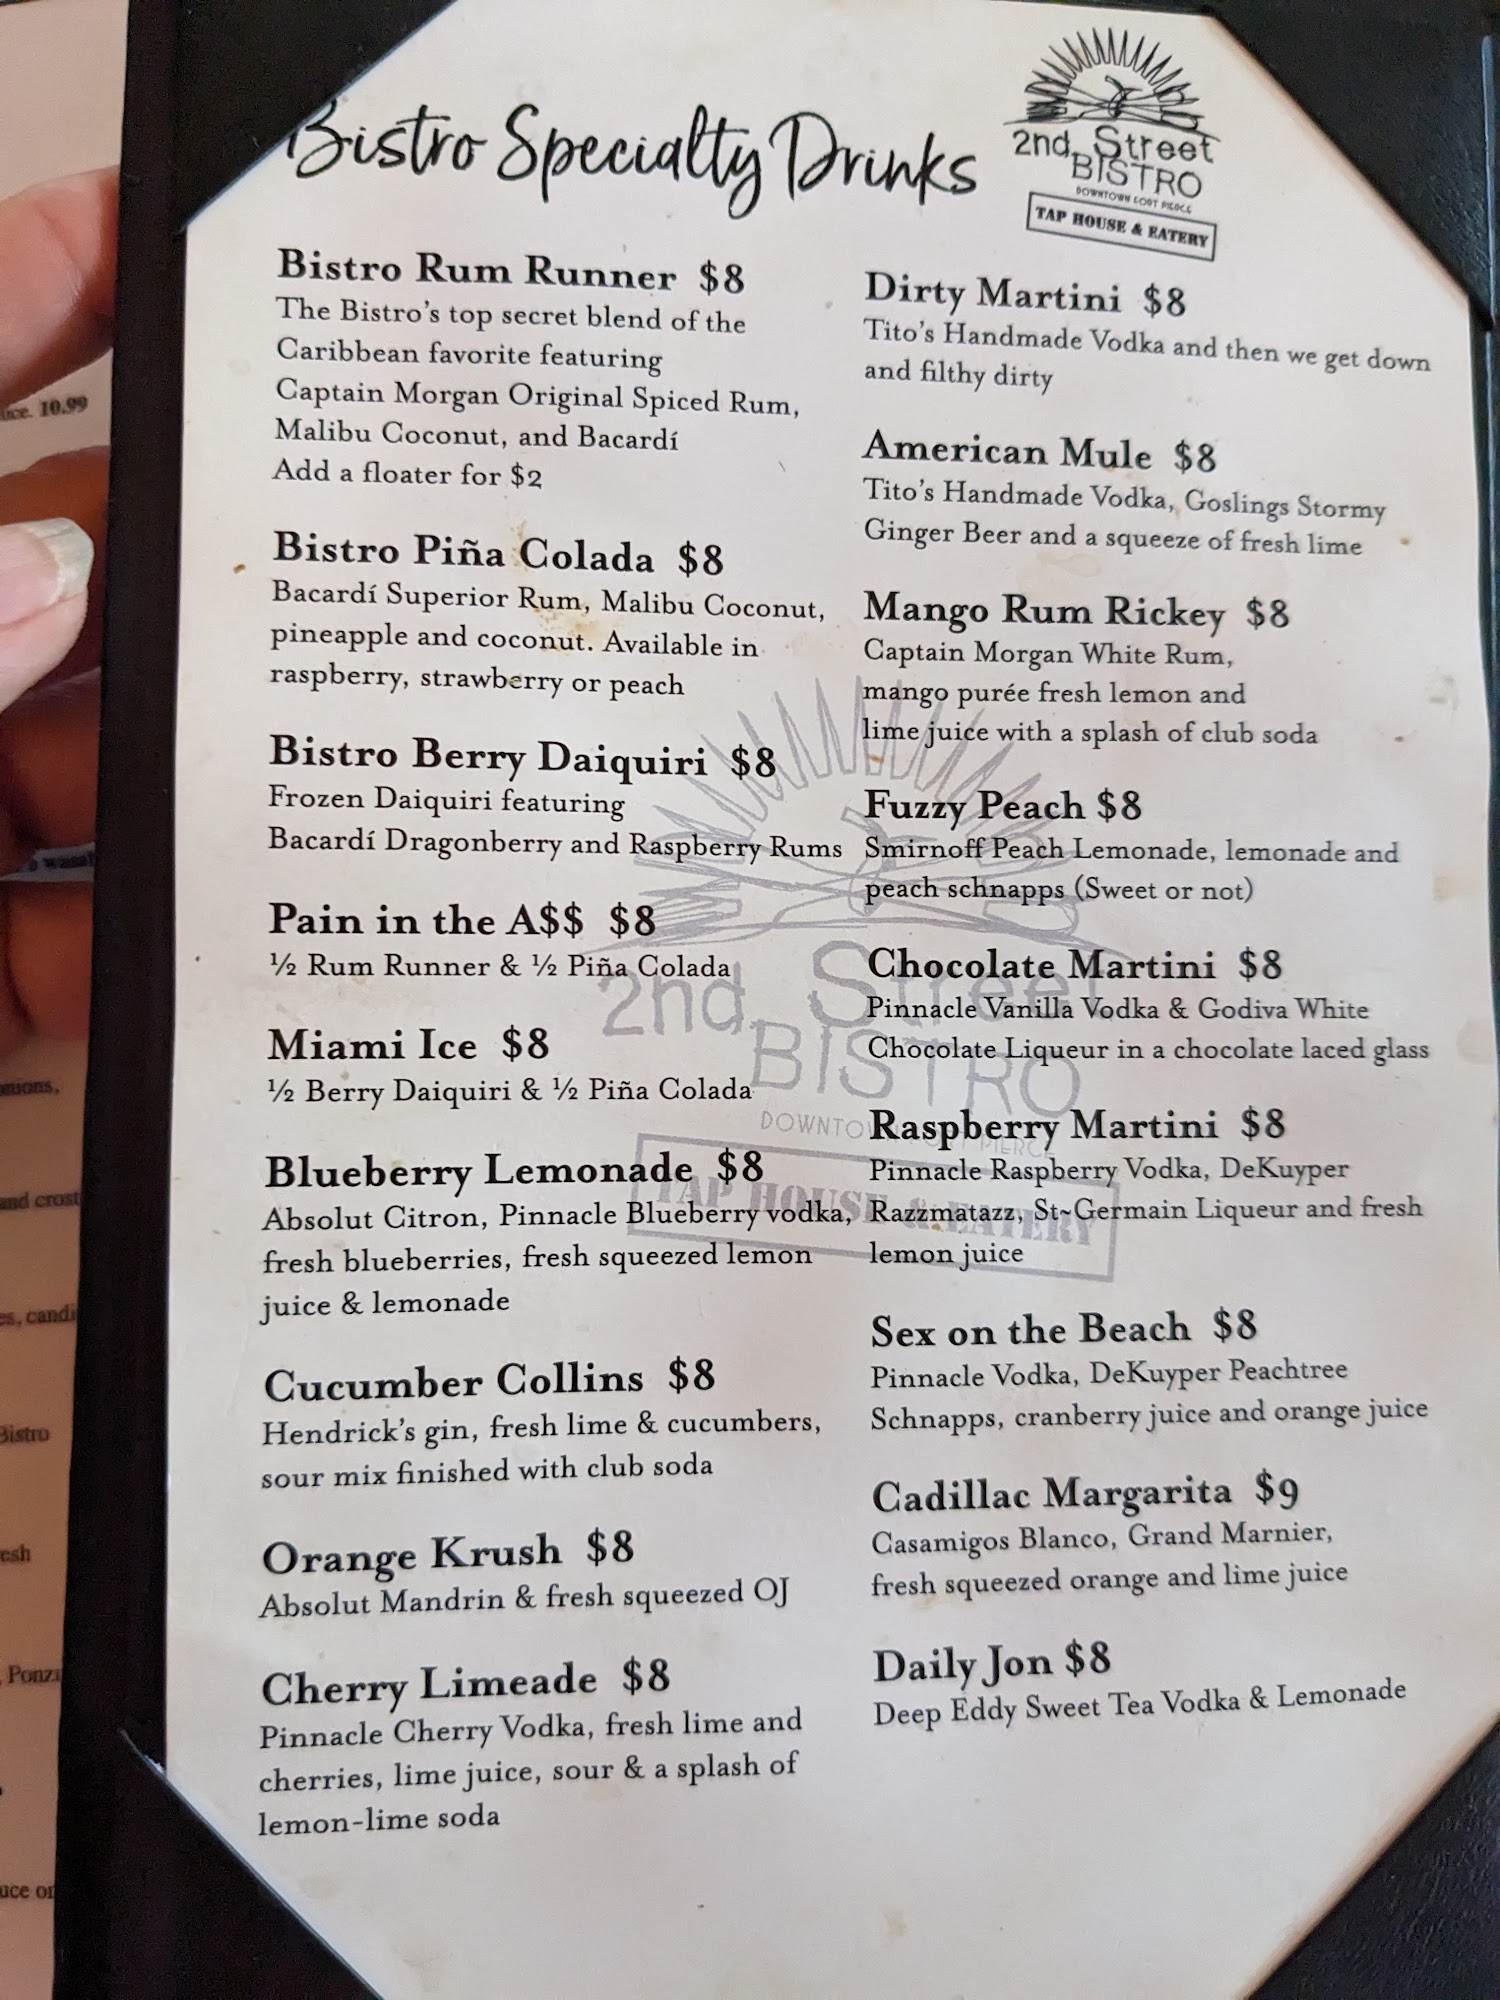 Bistro Specialty Drinks
2nd Street
BISTRO
DOWNTOWN FORT PIERCE
TAP HOUSE & EATERY
Bistro Rum Runner $8
The Bistro's top secret blend of the
Caribbean favorite featuring
Captain Morgan Original Spiced Rum,
Malibu Coconut, and Bacardí
Add a floater for $2
Bistro Piña Colada $8
Bacardí Superior Rum, Malibu Coconut,
pineapple and coconut. Available in
raspberry, strawberry or peach
Bistro Berry Daiquiri $8
Frozen Daiquiri featuring
Bacardí Dragonberry and Raspberry Rums
Pain in the A$$ $8
½ Rum Runner & ½ Piña Colada
Miami Ice $8
½ Berry Daiquiri & ½ Piña Colada
Blueberry Lemonade $8
Absolut Citron, Pinnacle Blueberry vodka,
fresh blueberries, fresh squeezed lemon
juice & lemonade
Cucumber Collins $8
Hendrick's gin, fresh lime & cucumbers,
sour mix finished with club soda
Orange Krush $8
Absolut Mandrin & fresh squeezed OJ
Cherry Limeade $8
Pinnacle Cherry Vodka, fresh lime and
cherries, lime juice, sour & a splash of
lemon-lime soda
Dirty Martini $8
Tito's Handmade Vodka and then we get down
and filthy dirty
American Mule $8
Tito's Handmade Vodka, Goslings Stormy
Ginger Beer and a squeeze of fresh lime
Mango Rum Rickey $8
Captain Morgan White Rum,
mango purée fresh lemon and
lime juice with a splash of club soda
Fuzzy Peach $8
Smirnoff Peach Lemonade, lemonade and
peach schnapps (Sweet or not)
Chocolate Martini $8
Pinnacle Vanilla Vodka & Godiva White
Chocolate Liqueur in a chocolate laced glass
Raspberry Martini $8
Pinnacle Raspberry Vodka, DeKuyper
Razzmatazz, St~Germain Liqueur and fresh
lemon juice
Sex on the Beach $8
Pinnacle Vodka, DeKuyper Peachtree
Schnapps, cranberry juice and orange juice
Cadillac Margarita $9
Casamigos Blanco, Grand Marnier,
fresh squeezed orange and lime juice
Daily Jon $8
Deep Eddy Sweet Tea Vodka & Lemonade
2nd Street
BISTRO
DOWNTOWN FORT PIERCE
TAP HOUSE & EATERY
10.99
and
Bistro